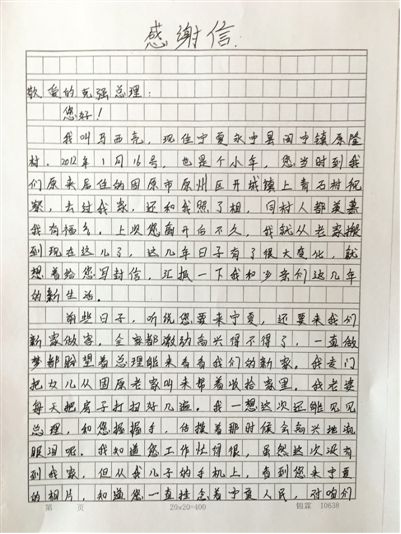 感谢信
敬爱的克强总理：
您好！
我叫马西亮，现住宁夏永宁县闽宁镇原隆
村。2012年1月16号，也是个小年，您当时到我
们原来居住的固原市原州区开城镇上青石村视
察，去过我家，还和我照了相，同村人都羡慕
我有福。上次您离开后不久，我就从老家搬
到现在这儿了，这几年日子有了很大变化，就
想着给您写封信，汇报一下我和乡亲们这几年
的新生活。
前些日子，听说您要来宁夏，还要来我们
新家做客，全家都激动高兴得不得了，一直做
梦都盼望着总理能来看看我们的新家。我专门
把女儿从固原老家叫来帮着收拾家里。我老婆
每天把房子打扫好几遍。我一想这次还能见见
总理，和您握握手，估摸着那时候会高兴地流
眼泪呢。我知道您工作忙得很，虽然这次没有
到我家，但从我儿子的手机上，看到您来宁夏
的相片，知道您一直挂念着宁夏人民，对咱们
第 页 20×20=400 10638